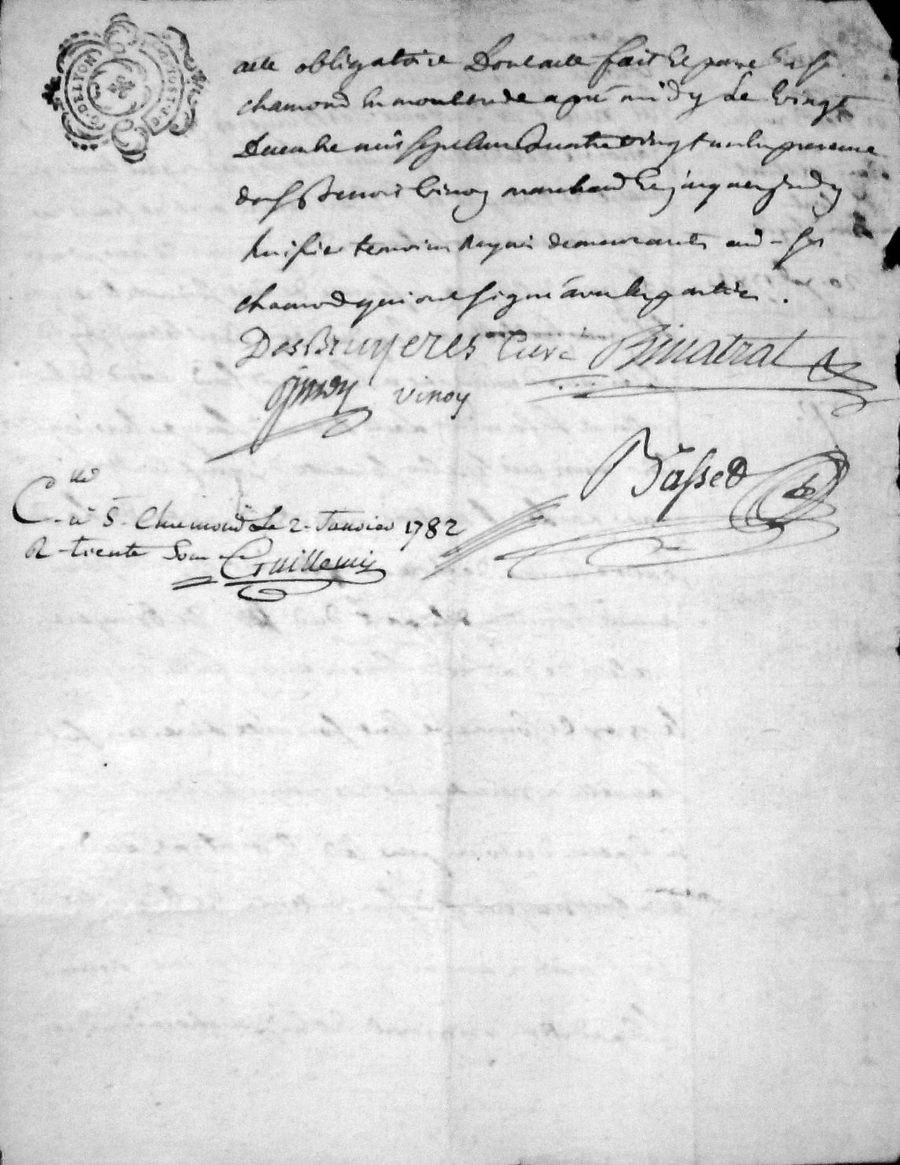 G. DE LYON
acte obligatoire Dont acte fait et passé a St
chamond en mon etude apres midy Le vingt
Decembre mil sept cent quatre vingt un En presence
de Sr Benoit Vinoy marchand et jacques
huissier temoins requis demeurants aud. St
chamond qui ont signé avec les parties.
DesBruyeres Curé
Vinoy
Basset
C.lé a St. Chamond Le 2. Janvier 1782
R. trente Sous